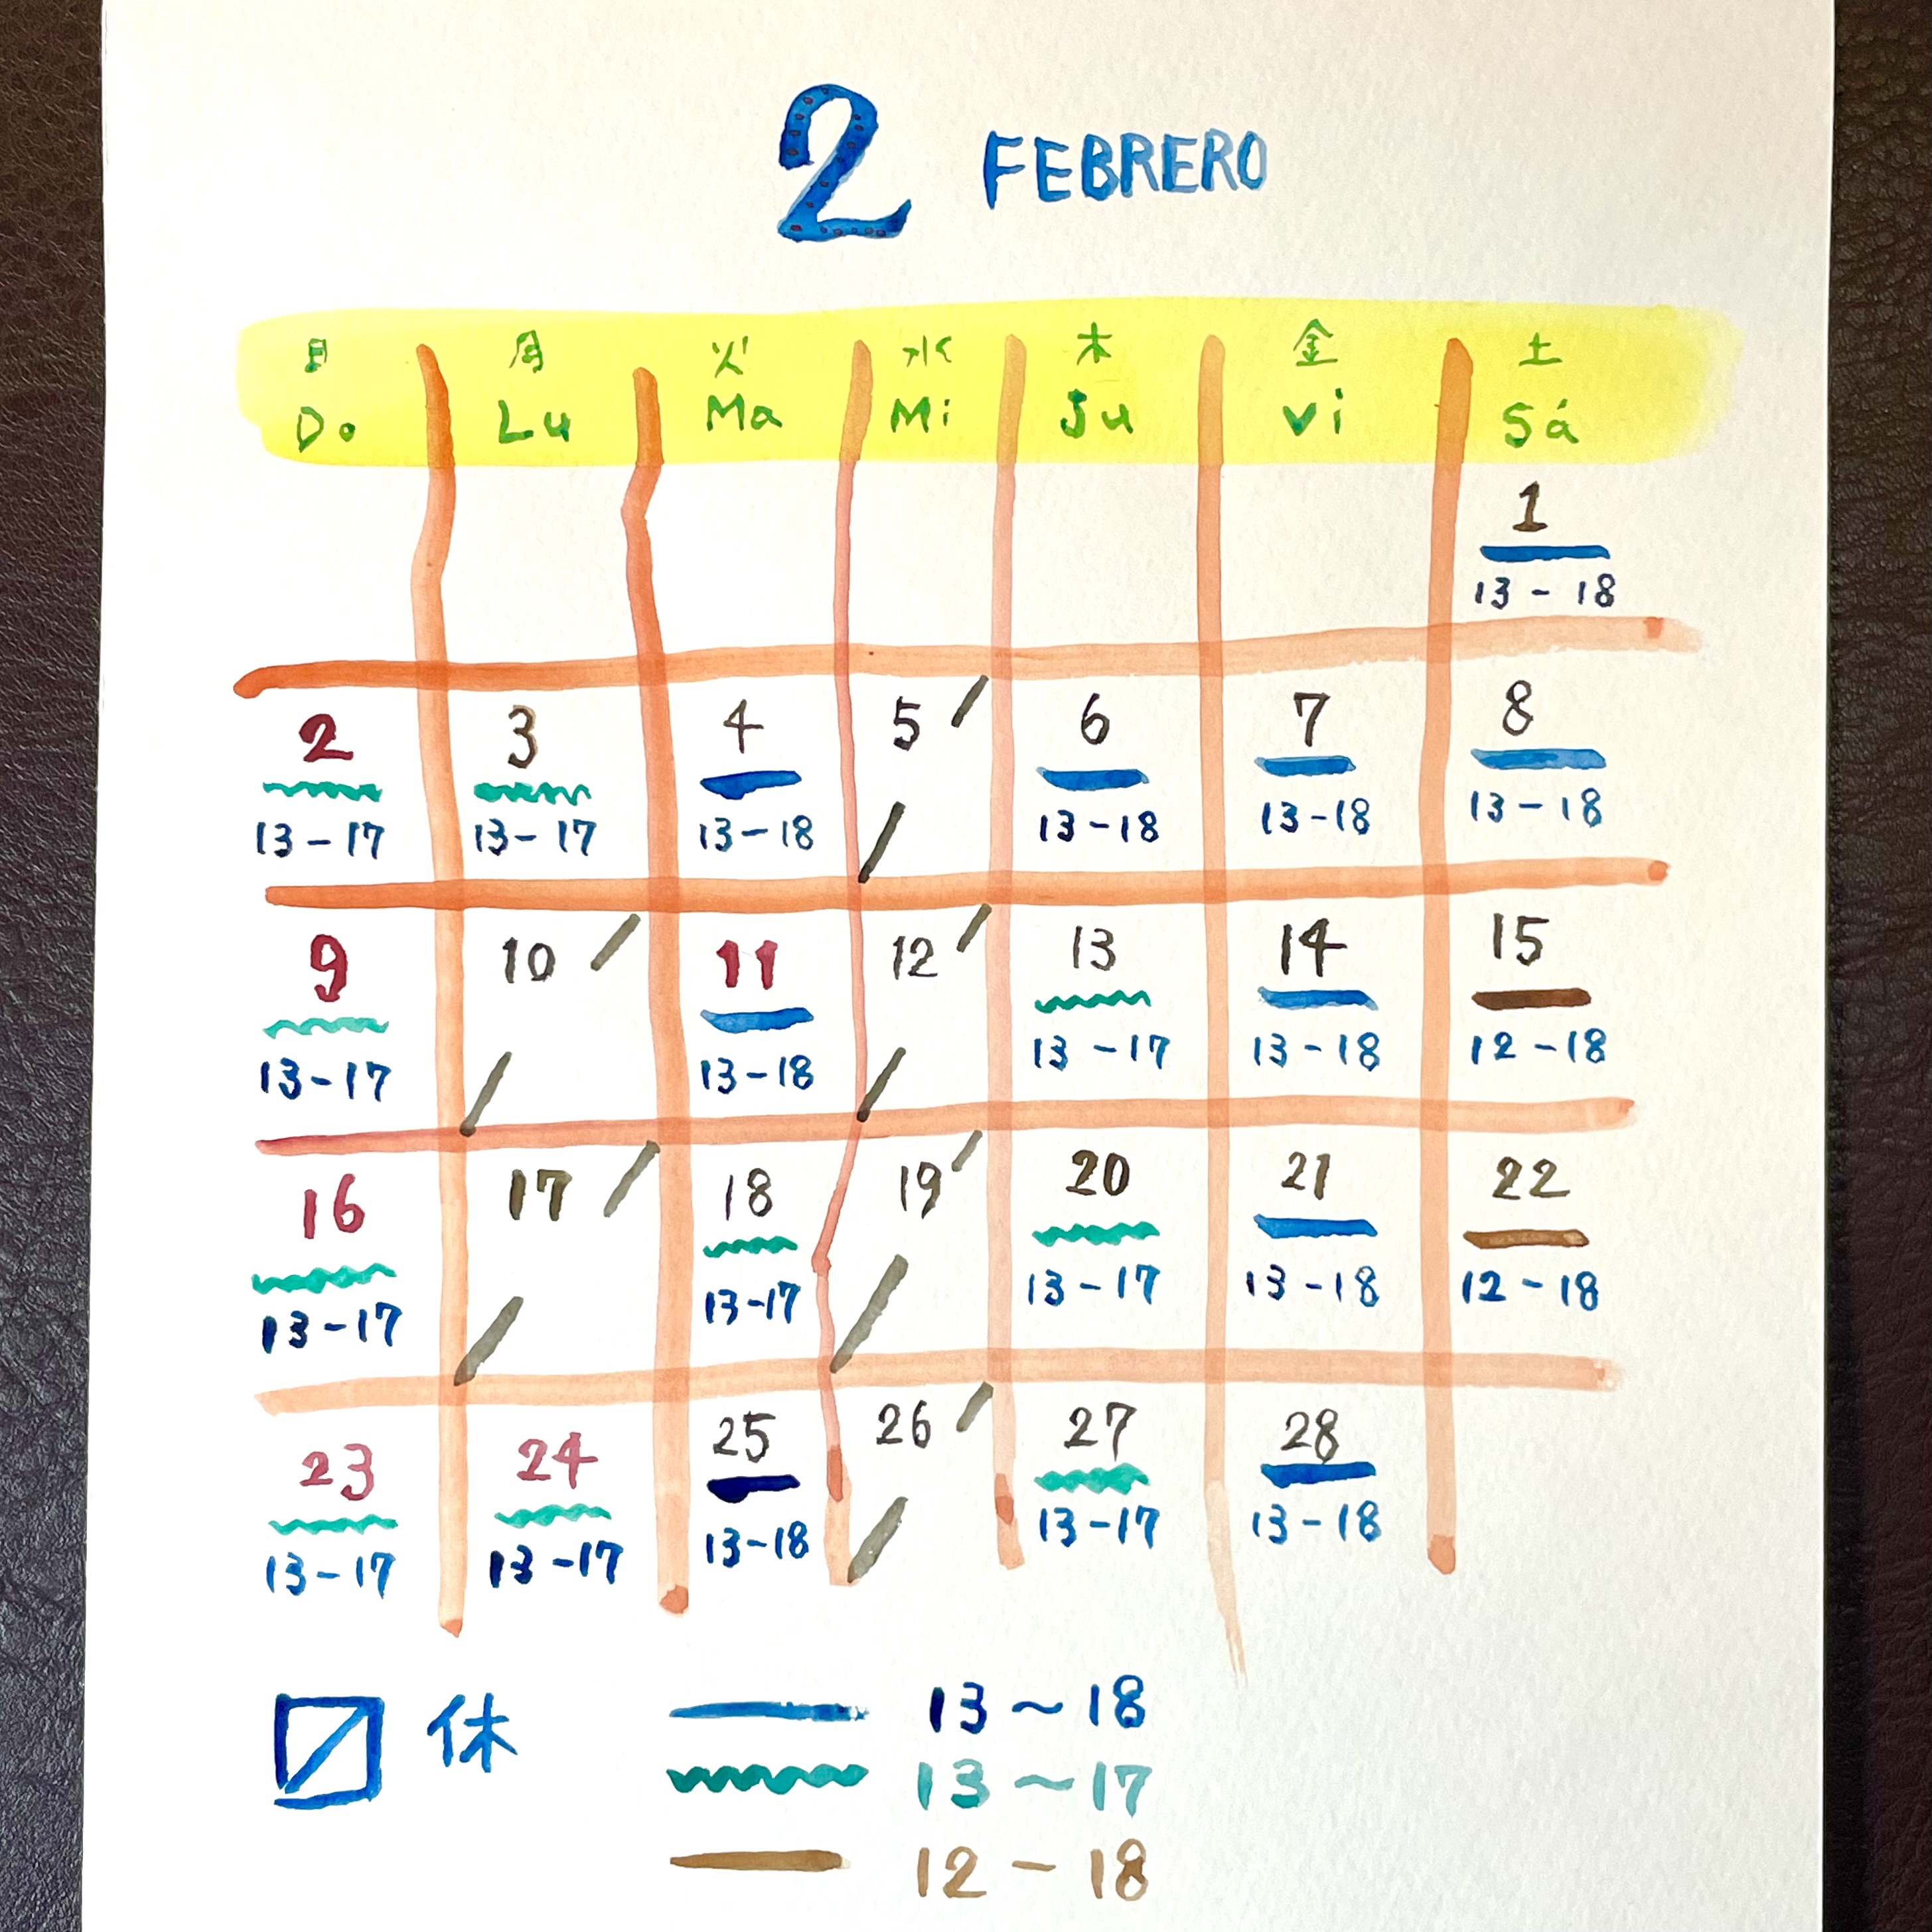 2 FEBRERO
日 月 火 水 木 金 土
Do Lu Ma Mi Ju Vi Sá
1
13-18
2 3 4 5 6 7 8
13-17 13-17 13-18 13-18 13-18 13-18
9 10 11 12 13 14 15
13-17 13-18 13-17 13-18 12-18
16 17 18 19 20 21 22
13-17 13-17 13-17 13-18 12-18
23 24 25 26 27 28
13-17 13-17 13-18 13-17 13-18
休 13～18
13～17
12-18